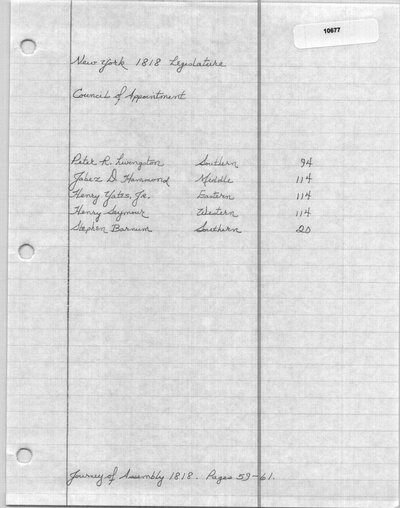 10677
New York 1818 Legislature
Council of Appointment
Peter R. Livingston Southern 94
Jabez D. Hammond Middle 114
Henry Yates, Jr. Eastern 114
Henry Seymour Western 114
Stephen Barnum Southern 20
Journey of Assembly 1818. Pages 59-61.